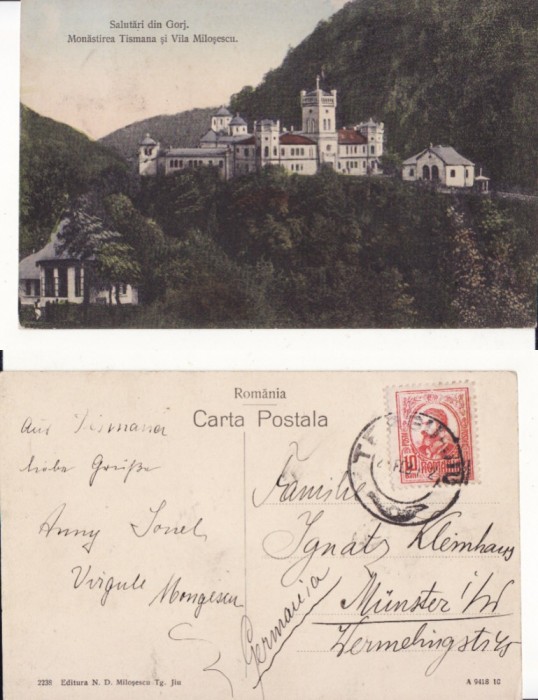 Salutări din Gorj.
Monăstirea Tismana și Vila Miloșescu.
România
Carta Postala
10 ROMANIA
Aus Tismana
liebe Grüße
Anny Ionel
Virgule Mongescu
Familie
Ignatz Kleinhaus
Münster i/W
Germania
2238 Editura N. D. Miloșescu Tg. Jiu
A 9418 10